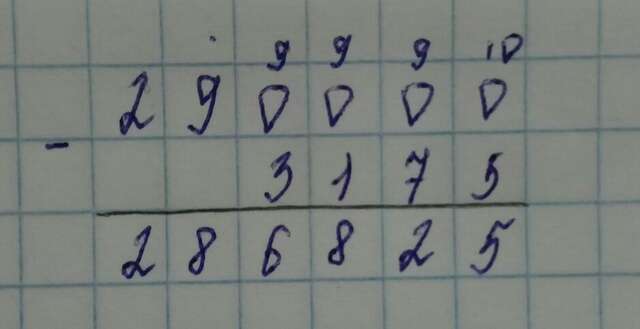 9 9 9 10
2 9 0 0 0 0
-
3 1 7 5
2 8 6 8 2 5